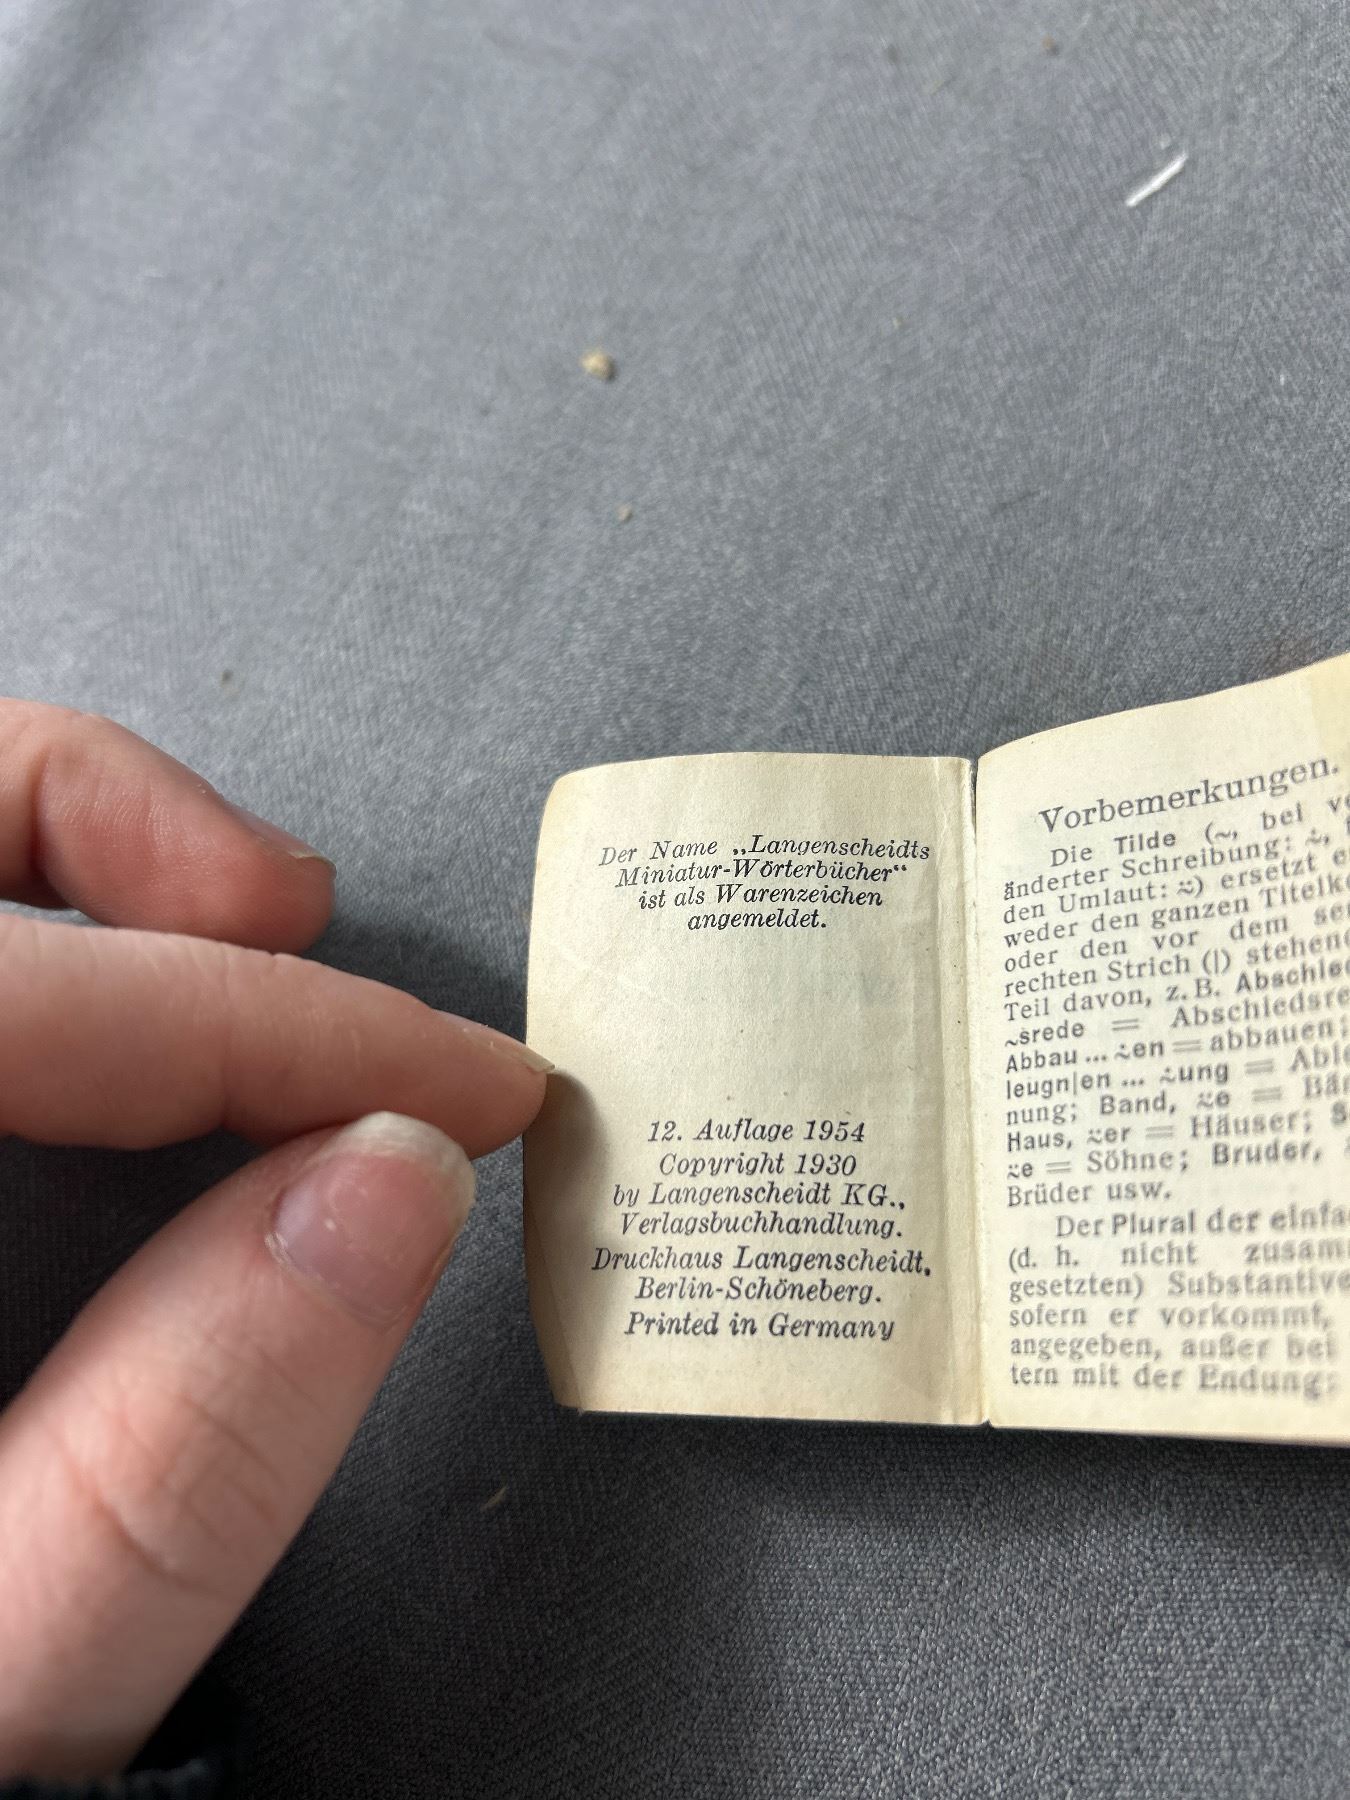 Der Name „Langenscheidts
Miniatur-Wörterbücher“
ist als Warenzeichen
angemeldet.
12. Auflage 1954
Copyright 1930
by Langenscheidt KG.,
Verlagsbuchhandlung.
Druckhaus Langenscheidt,
Berlin-Schöneberg.
Printed in Germany
Vorbemerkungen.
Die Tilde (~, bei
änderter Schreibung:
den Umlaut: ) ersetzt
weder den ganzen
oder den vor dem
rechten Strich (|)
Teil davon, z. B.
~srede =
Abbau ... en = abbauen;
leugn|en ... ung =
nung; Band, e =
Haus, er = Häuser;
e = Söhne; Bruder,
Brüder usw.
Der Plural der
(d. h. nicht
gesetzten)
sofern er vorkommt,
angegeben, außer bei
tern mit der Endung: